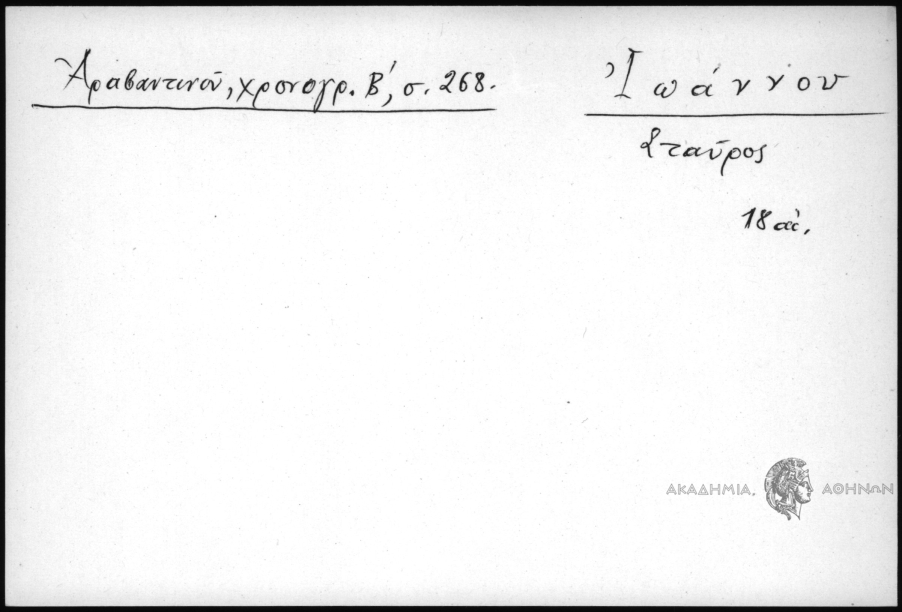 Ἀραβαντινοῦ, χρονογρ. Β', σ. 268.
Ἰωάννου
Σταῦρος
18 αἰ.
ΑΚΑΔΗΜΙΑ ΑΘΗΝΩΝ